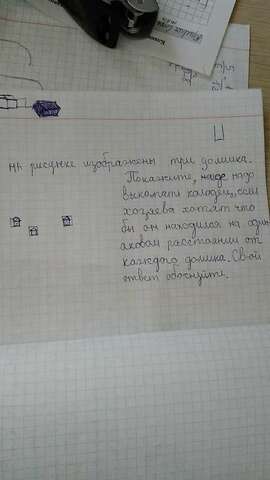 на рисунке изображены три домика.
Покажите, где надо
выкопать колодец, если
хозяева хотят что
бы он находился на один
аковом расстоянии от
каждого домика. Свой
ответ обоснуйте.